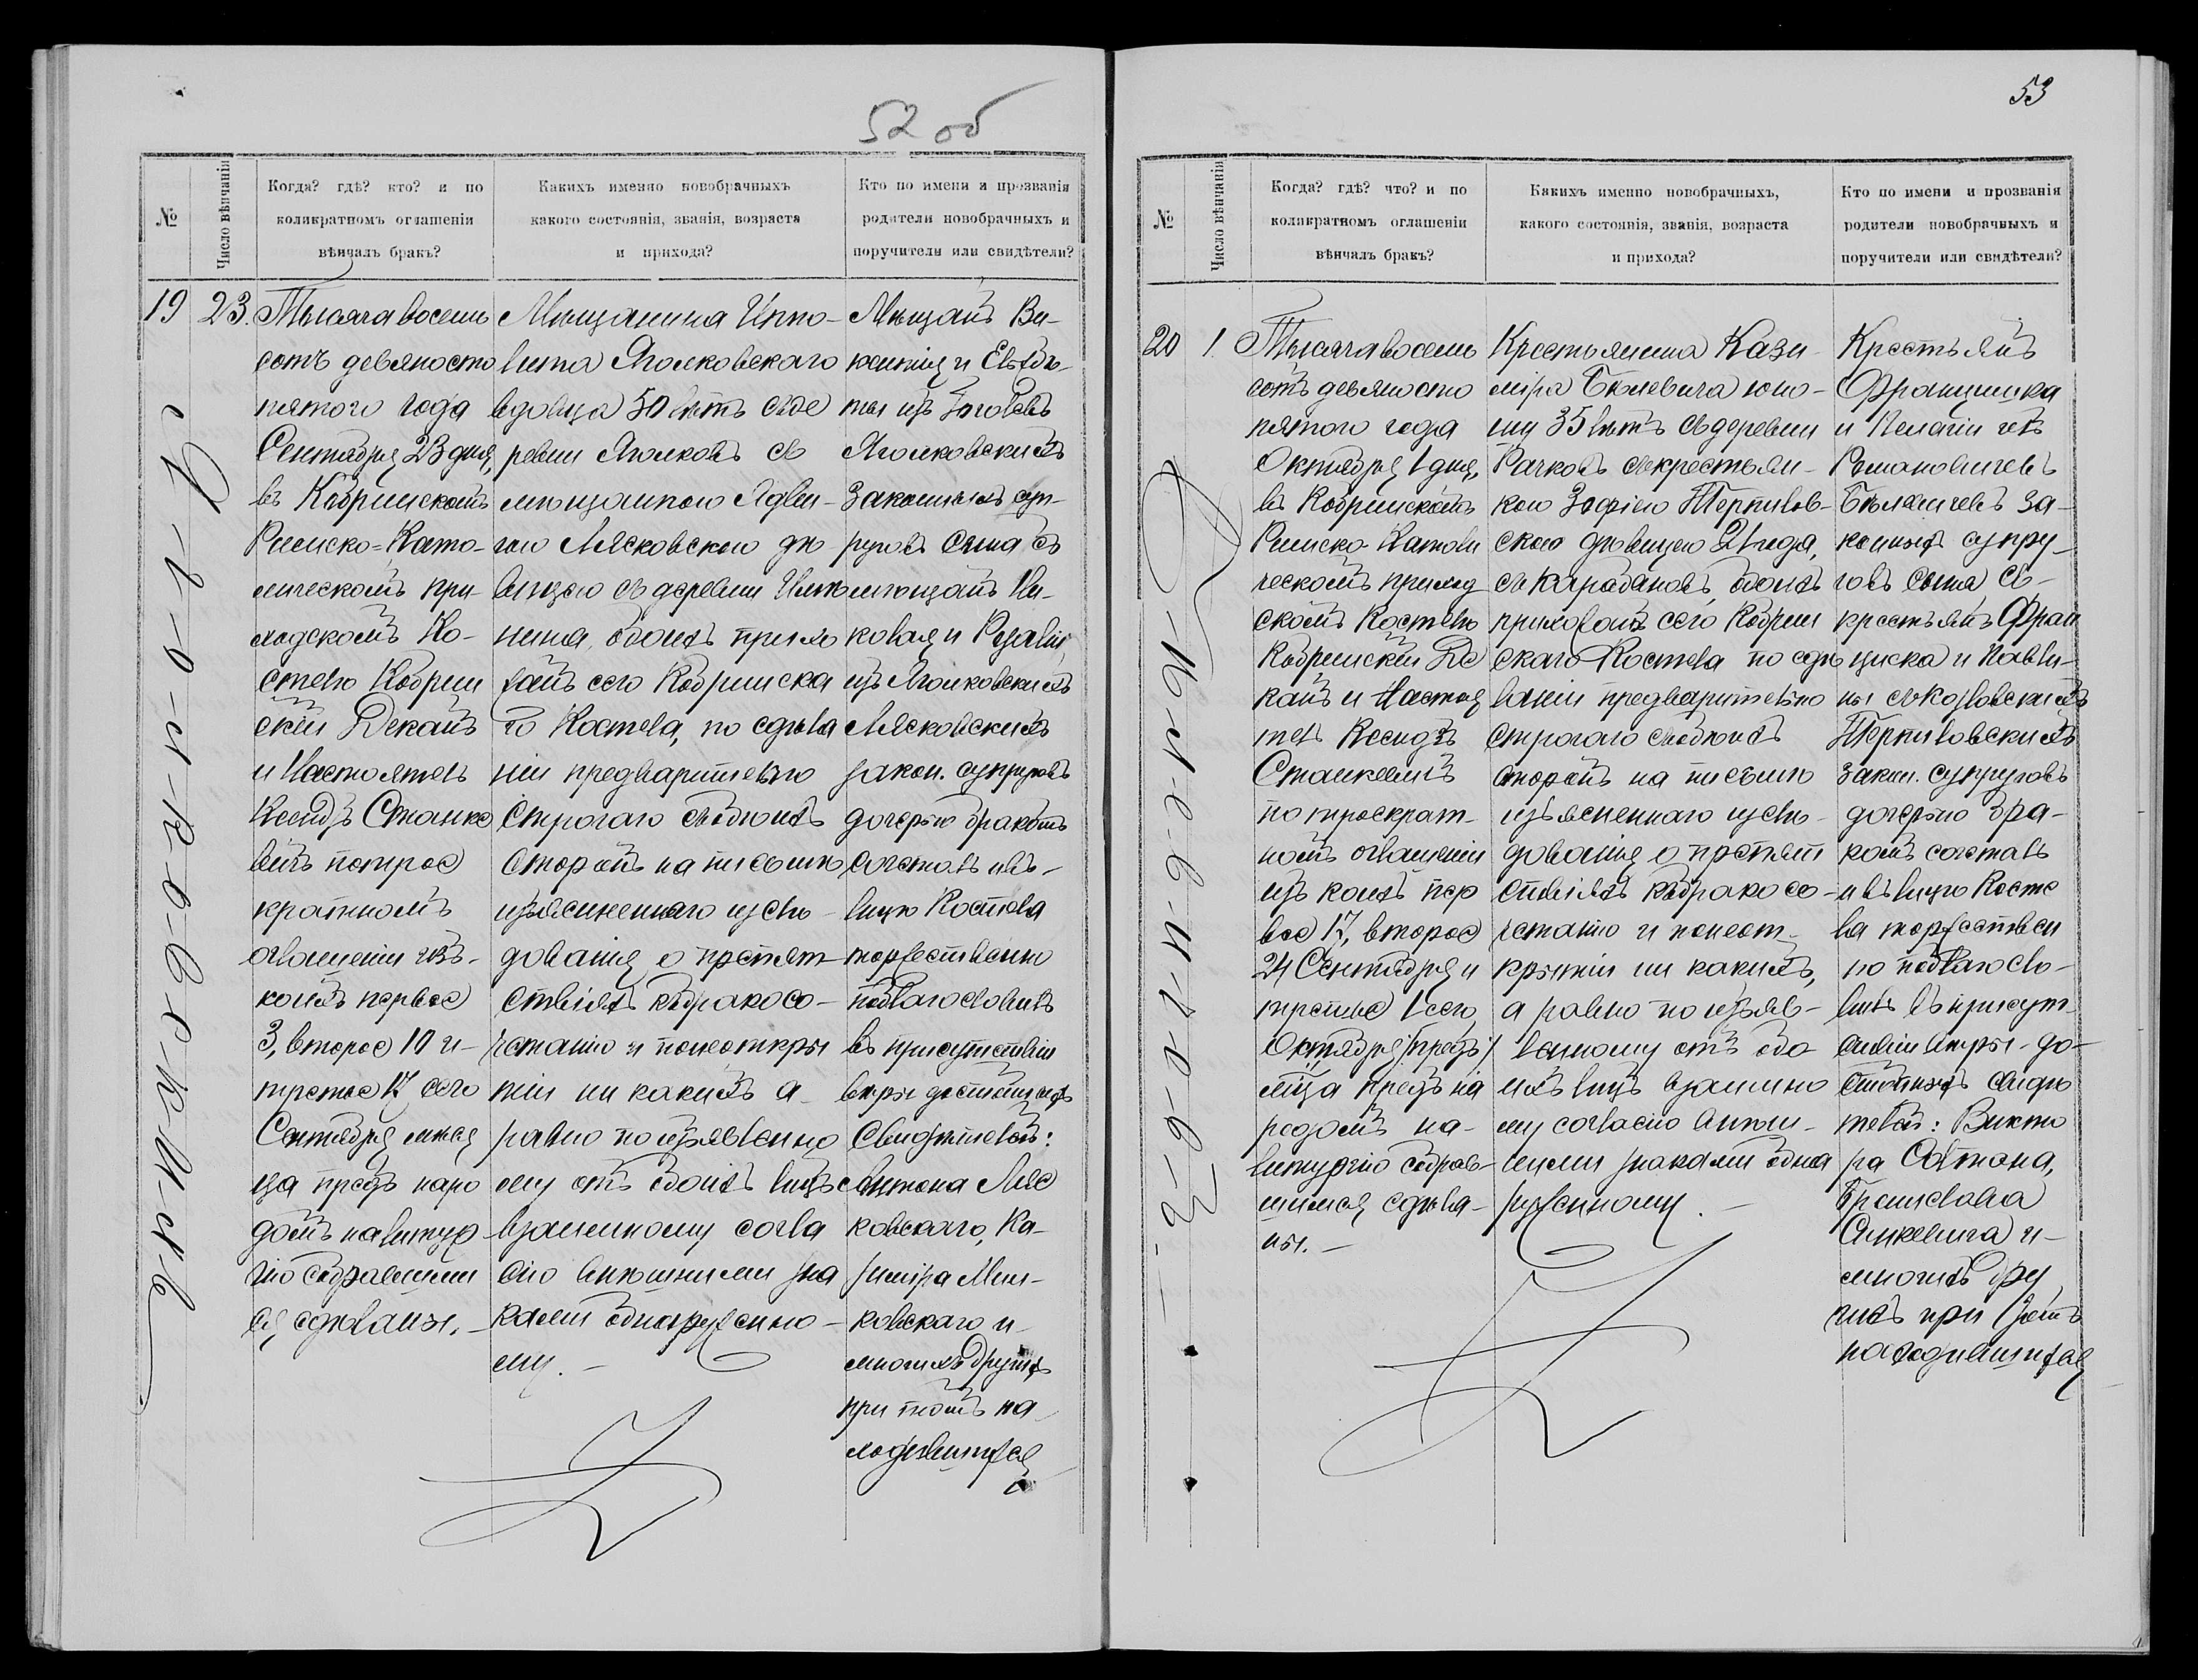 52 об
№
Число вѣнчанія
Когда? гдѣ? кто? и по
коликратномъ оглашеніи
вѣнчалъ бракъ?
Какихъ именно новобрачныхъ
какого состоянія, званія, возраста
и прихода?
Кто по имени и прозванія
родители новобрачныхъ и
поручители или свидѣтели?
19
23.
Тысяча восемь
сотъ девяносто
пятого года
Сентября 23 дня,
въ Кобринскомъ
Римско=Като-
лическомъ при-
ходскомъ Ко-
стелѣ Кобрин
скій Деканъ
и Настоятель
Ксендзъ Станке
вичъ по трое
кратномъ
оглашеніи изъ-
коихъ первое
3, второе 10 и-
третье 17 сего
Сентября меся
ца предъ наро
домъ на литур
гію собравшим
ся, сдѣланы.-
Мѣщанина Иппо-
лита Яголковскаго
вдовца 50 лѣтъ съ де
ревни Яголковъ съ
мѣщанкою Ядви-
гою Лясковскою дѣ
вицею съ деревни
обоихъ прихо
жанъ сего Кобринска
го Костела, по сдѣла
ніи предварительно
строгаго обоихъ
сторонъ на письмѣ
изъясненнаго изслѣ-
дованія о препят-
ствіяхъ къ брако со-
четанію и по неоткры
тіи ни какихъ а-
равно по изъявленно
му отъ обоихъ лицъ
взаимному согла
сію внѣшними зна
ками обнаруженно-
му.-
Мѣщанъ Ви-
кентія и
ты изъ
Яголковскихъ
законныхъ суп-
руговъ сына съ
мѣщанъ Ни-
колая и Розаліи
изъ Яголковскихъ
Лясковскихъ
закон. супруговъ
дочерью бракомъ
сочеталъ и въ-
лицѣ Костела
торжественно
поблагословилъ
въ присутствіи
вѣры достойныхъ
Свидѣтелей:
Антона Ляс
ковскаго, Ка-
зиміра Мин-
ковскаго и
многихъ другихъ
при томъ на-
ходившихся
53
№
Число вѣнчанія
Когда? гдѣ? что? и по
коликратномъ оглашеніи
вѣнчалъ бракъ?
Какихъ именно новобрачныхъ,
какого состоянія, званія, возраста
и прихода?
Кто по имени и прозванія
родители новобрачныхъ и
поручители или свидѣтели?
20
1
Тысяча восемь
сотъ девяносто
пятого года
Октября 1 дня,
въ Кобринскомъ
Римско Католи
ческомъ приход
скомъ Костелѣ
Кобринскій Де
канъ и Настоя
тель Ксендзъ
Станкевичъ
по троекрат-
номъ оглашеніи
изъ коихъ пер
вое 17, второе
24 Сентября и
третье 1 сего
Октября
мѣца предъ на
родомъ на-
литургію собрав-
шимся сдѣла-
ны.-
Крестьянина Кази-
міра Билевича юно-
шу 35 лѣтъ съ деревни
Рачковъ съ крестьян-
кою Зофіею Терпилов-
скою дѣвицею 21 года,
съ Карабановъ, обоихъ
прихожанъ сего Кобрин
скаго Костела по сдѣ
ланіи предварительно
строгаго обоихъ
сторонъ на письмѣ
изъясненнаго изслѣ-
дованія о препят
ствіяхъ къ брако со-
четанію и по неот-
крытіи ни какихъ,
а равно по изъяв-
ленному отъ обо
ихъ лицъ взаимно
му согласію внѣш-
ними знаками обна
руженному.-
Крестьянъ
Францишка
и Пелагіи изъ
Романовичевъ
Билевичевъ за-
конныхъ супру-
говъ сына съ-
крестьянъ Фран
циска и Павли-
ны съ Козловскихъ
Терпиловскихъ
закон. супруговъ
дочерью бра-
комъ сочеталъ
и въ лицѣ Косте
ла торжествен
но поблагосло-
вилъ въ присут
ствіи вѣры-до-
стойныхъ свидѣ
телей: Викто
ра Солтана,
Бранислава
Синкевича и-
многихъ дру
гихъ при семъ
находившихся